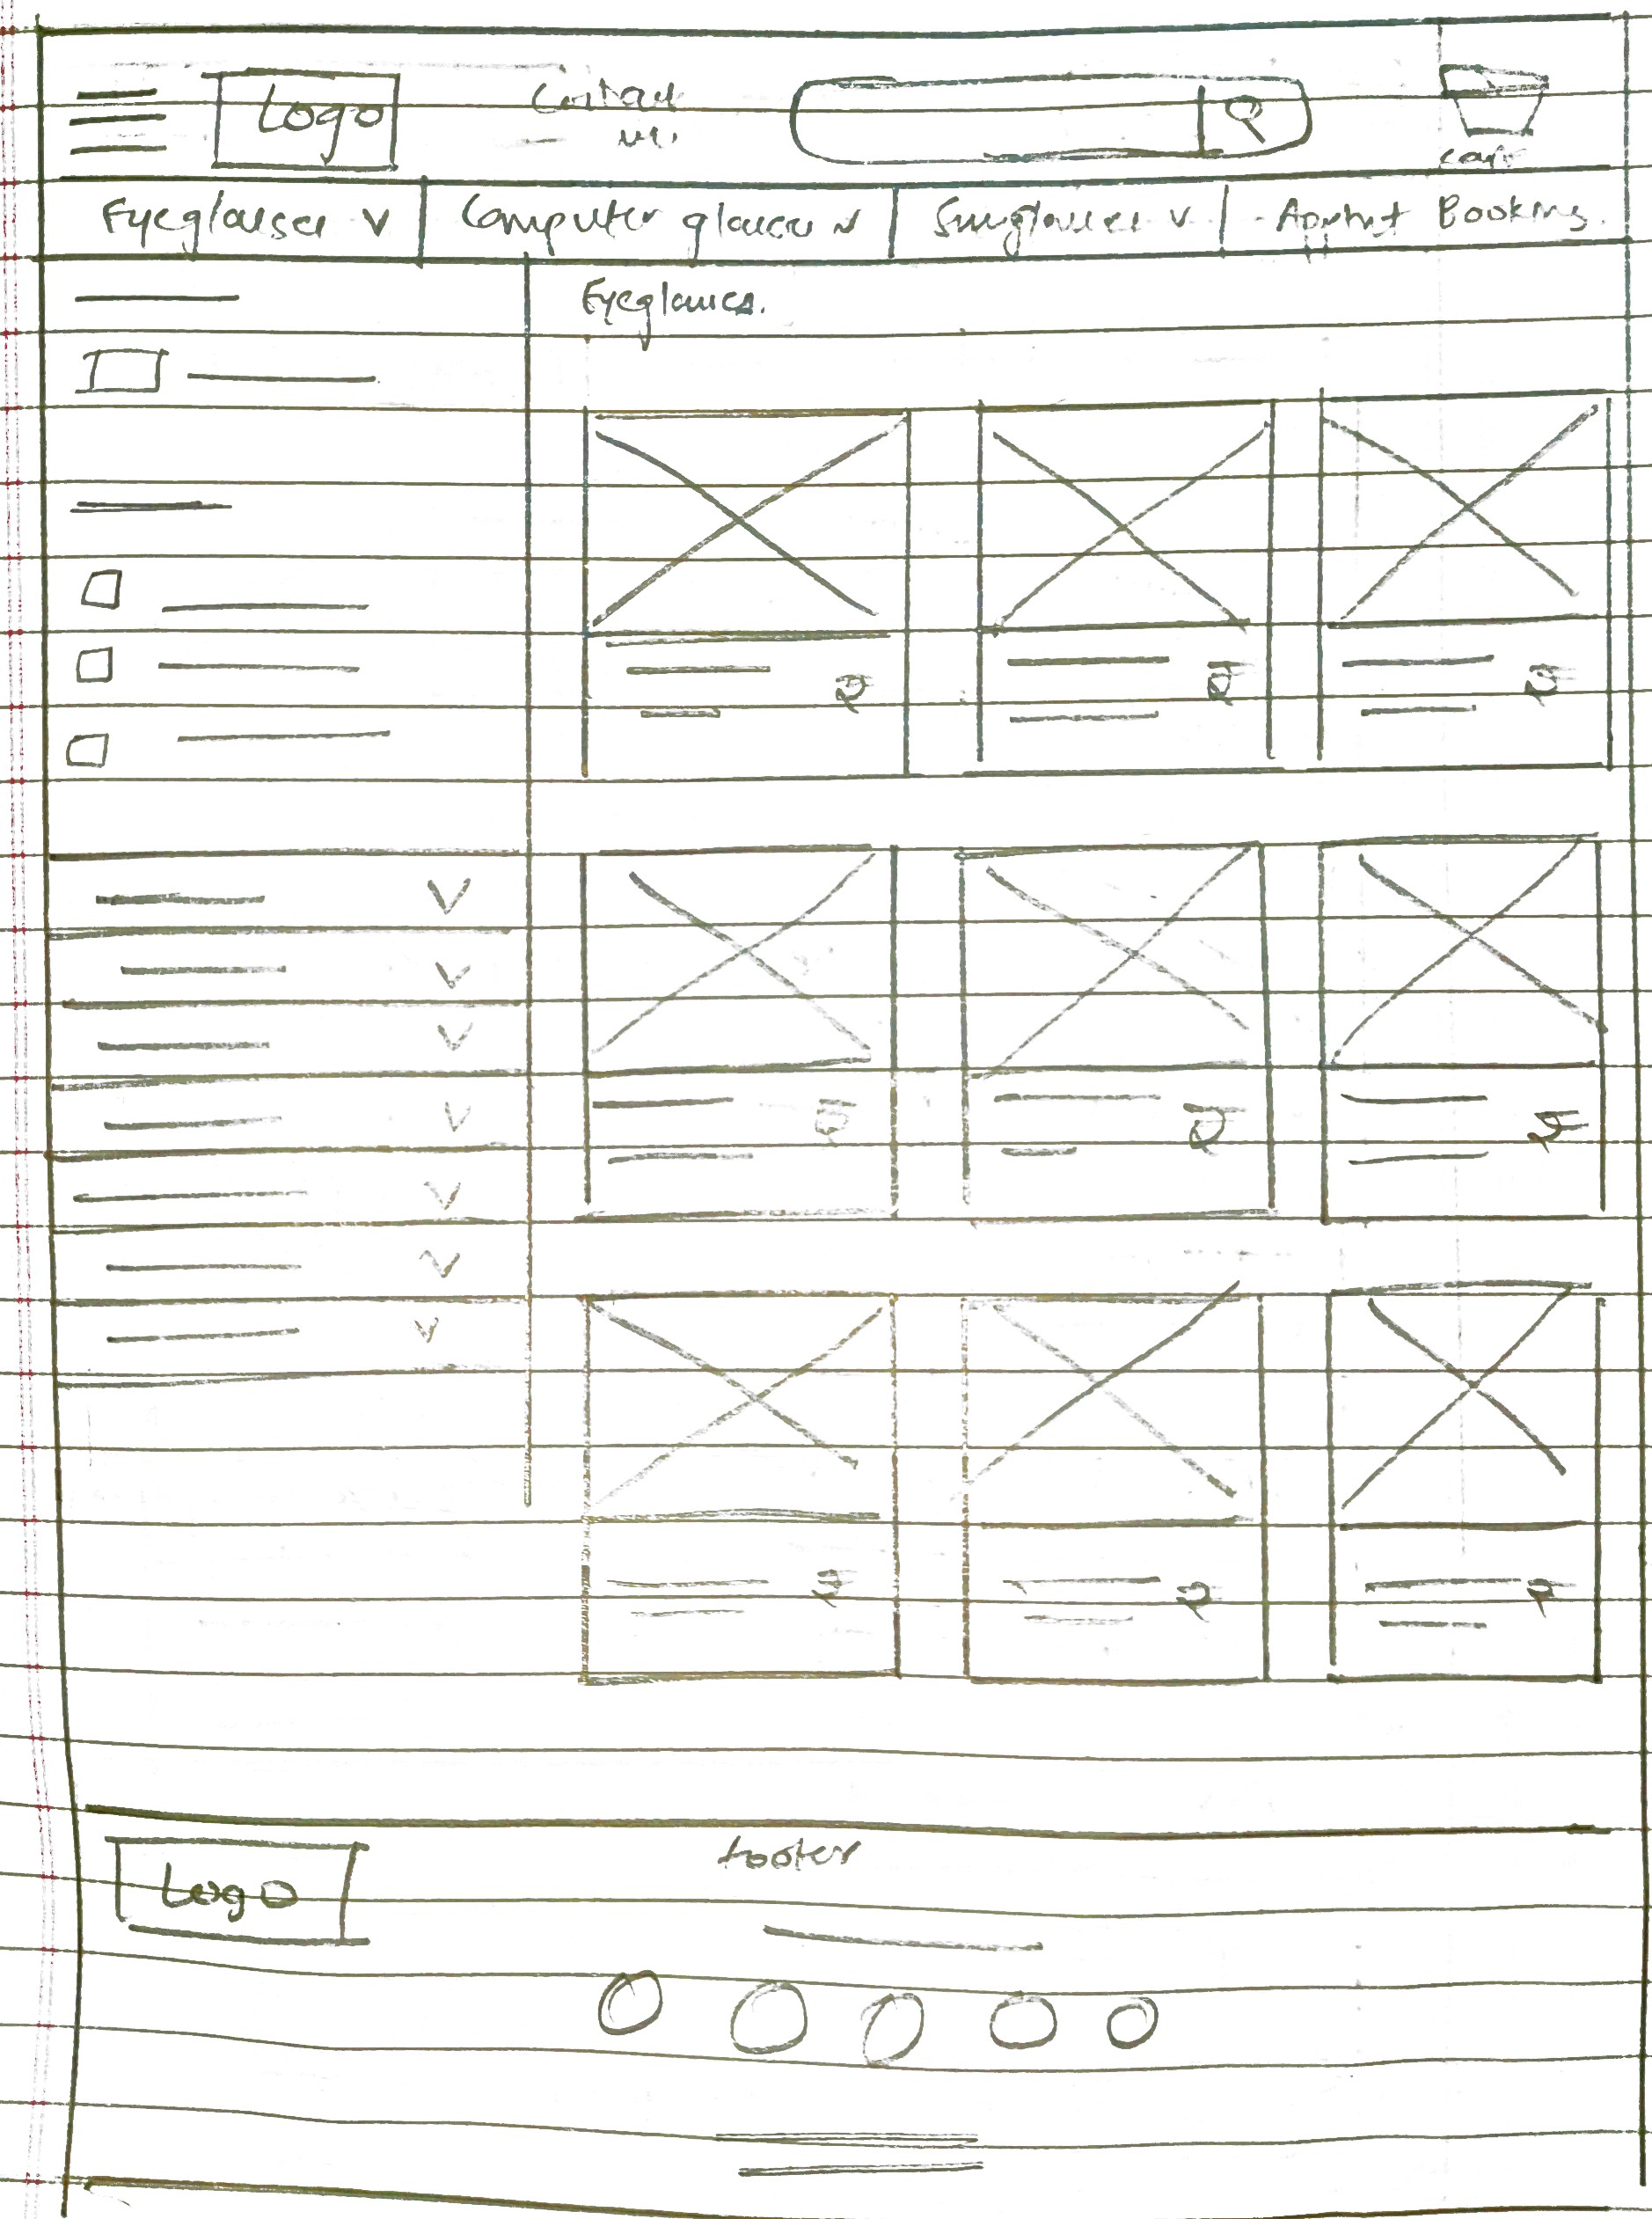 Logo
Contact
no.
cart
Eyeglasses v
Computer glasses v
Sunglasses v
Appmt Booking.
Eyeglasses.
₹ ₹ ₹
₹ ₹ ₹
₹ ₹ ₹
footer
Logo